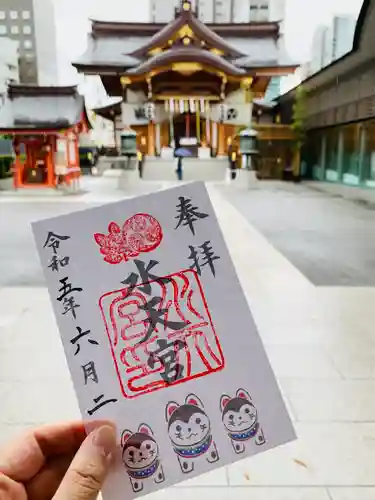 奉拝
水天宮
水天宮
令和五年六月二